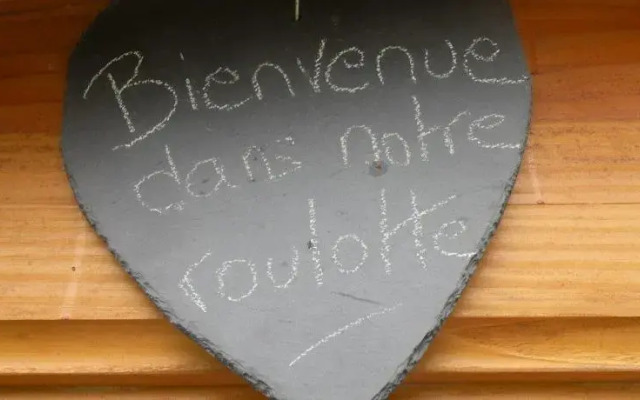 Bienvenue
dans notre
roulotte